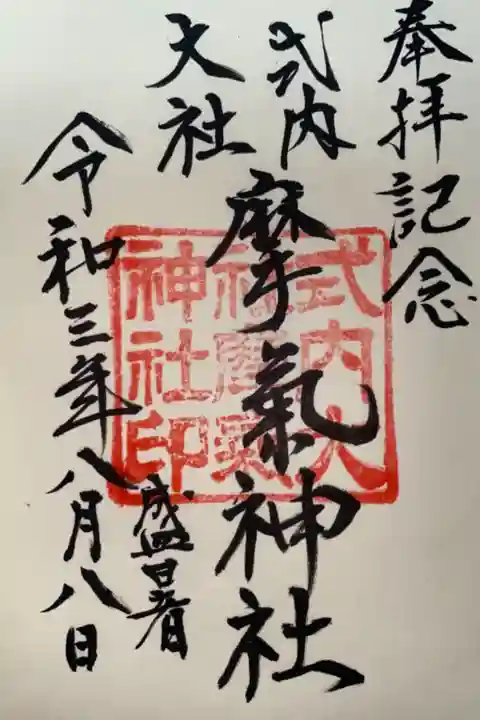 奉拝記念
式内
大社
摩氣神社
盛暑
令和三年八月八日
式内大
神社印